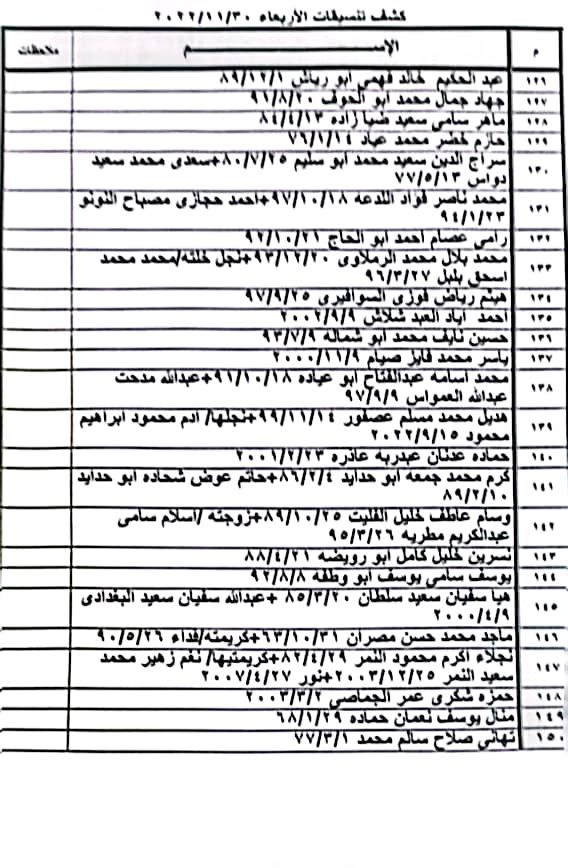 كشف تنسيقات الأربعاء ٢٠٢٢/١١/٣٠
م الإســـــــــم ملاحظات
١٢٦ عبد الحكيم خالد فهمى ابو رياش ٨٩/١٢/١
١٢٧ جهاد جمال محمد ابو الحوف ٩١/٨/٢٠
١٢٨ ماهر سامى سعيد ضبا زاده ٨٤/٤/١٣
١٢٩ حازم خضر محمد عياد ٧٦/١/١٤
١٣٠ سراج الدين سعيد محمد ابو سليم ٨٠/٧/٢٥+سعدى محمد سعيد
دواس ٧٧/٥/١٣
١٣١ محمد ناصر فؤاد اللدعه ٩٧/١٠/١٨+احمد حجازى مصباح النونو
٩٤/١/٢٣
١٣٢ رامى عصام احمد ابو الحاج ٩٢/١٠/٢١
١٣٣ محمد بلال محمد الرملاوى ٩٣/١٢/٢٠+نجل خلته/محمد محمد
اسحق بلبل ٩٦/٣/٢٧
١٣٤ هيثم رياض فوزى السوافيرى ٩٧/٩/٢٥
١٣٥ احمد اياد العبد شلاش ٢٠٠٢/٩/٩
١٣٦ حسين نايف محمد ابو شماله ٩٣/٧/٩
١٣٧ ياسر محمد فايز صيام ٢٠٠٠/١١/٩
١٣٨ محمد اسامه عبدالفتاح ابو عياده ٩١/١٠/١٨+عبدالله مدحت
عبدالله العمواس ٩٧/٩/٩
١٣٩ هديل محمد مسلم عصفور ٩٩/١١/١٤+نجلها/ ادم محمود ابراهيم
محمود ٢٠٢٢/٩/١٥
١٤٠ حماده عدنان عبدربه عاذره ٢٠٠١/٢/٢٣
١٤١ كرم محمد جمعه ابو حدايد ٨٦/٢/٤+حاتم عوض شحاده ابو حدايد
٨٩/٢/١٠
١٤٢ وسام عاطف خليل الفليت ٨٩/١٠/٢٥+زوجته /اسلام سامى
عبدالكريم مطريه ٩٥/٣/٢٦
١٤٣ نسرين خليل كامل ابو رويضه ٨٨/٤/٢١
١٤٤ يوسف سامى يوسف ابو وطفه ٩٢/٨/٨
١٤٥ هيا سفيان سعيد سلطان ٨٥/٣/٢٠ +عبدالله سفيان سعيد البغدادى
٢٠٠٠/٤/٩
١٤٦ ماجد محمد حسن مصران ٦٣/١٠/٣١+كريمته/فداء ٩٠/٥/٢٦
١٤٧ نجلاء اكرم محمود النمر ٨٢/٤/٢٩+كريمتيها/ نغم زهير محمد
سعيد النمر ٢٠٠٣/١٢/٢٥+نور ٢٠٠٧/٤/٢٧
١٤٨ حمزه شكرى عمر الجماصي ٢٠٠٣/٣/٢
١٤٩ منال يوسف نعمان حماده ٦٨/١/٢٩
١٥٠ تهانى صلاح سالم محمد ٧٧/٣/١